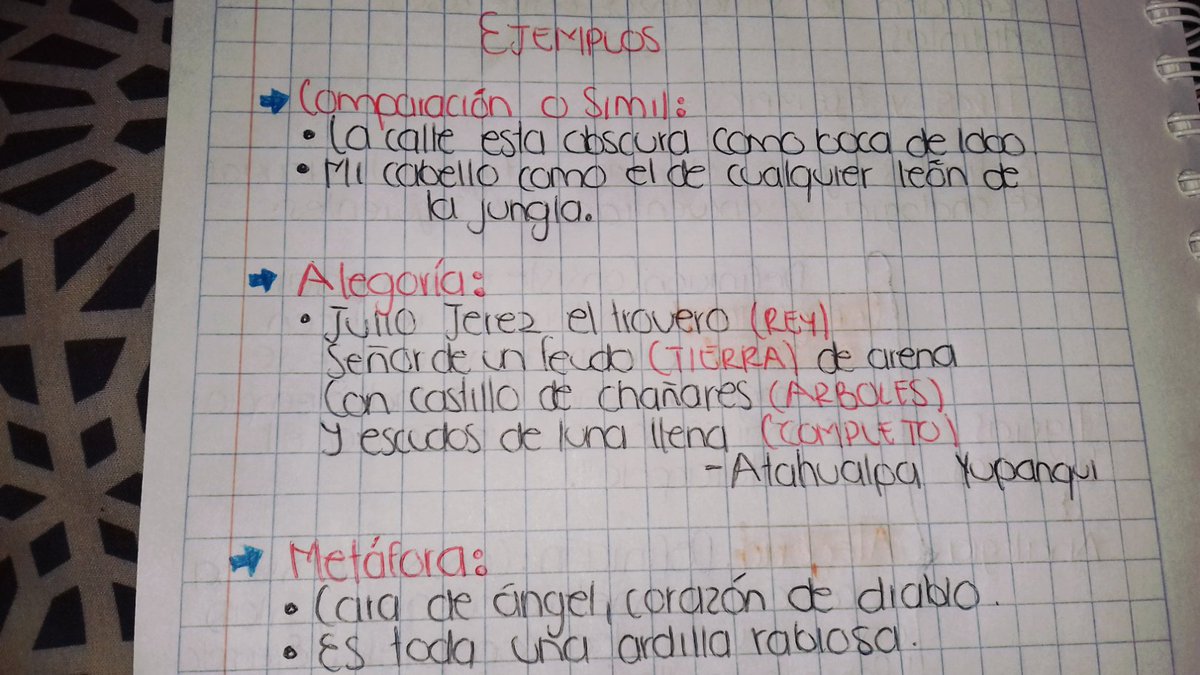 EJEMPLOS
Comparación o Simil:
• La calle esta obscura como boca de lobo
• Mi cabello como el de cualquier león de
la jungla.
Alegoría:
• Julio Jerez el trovero (REY)
Señor de un feudo (TIERRA) de arena
Con castillo de chañares (ARBOLES)
y escudos de luna llena (COMPLETO)
-Atahualpa Yupanqui
Metáfora:
• Cara de ángel, corazón de diablo.
• Es toda uña ardilla rabiosa.